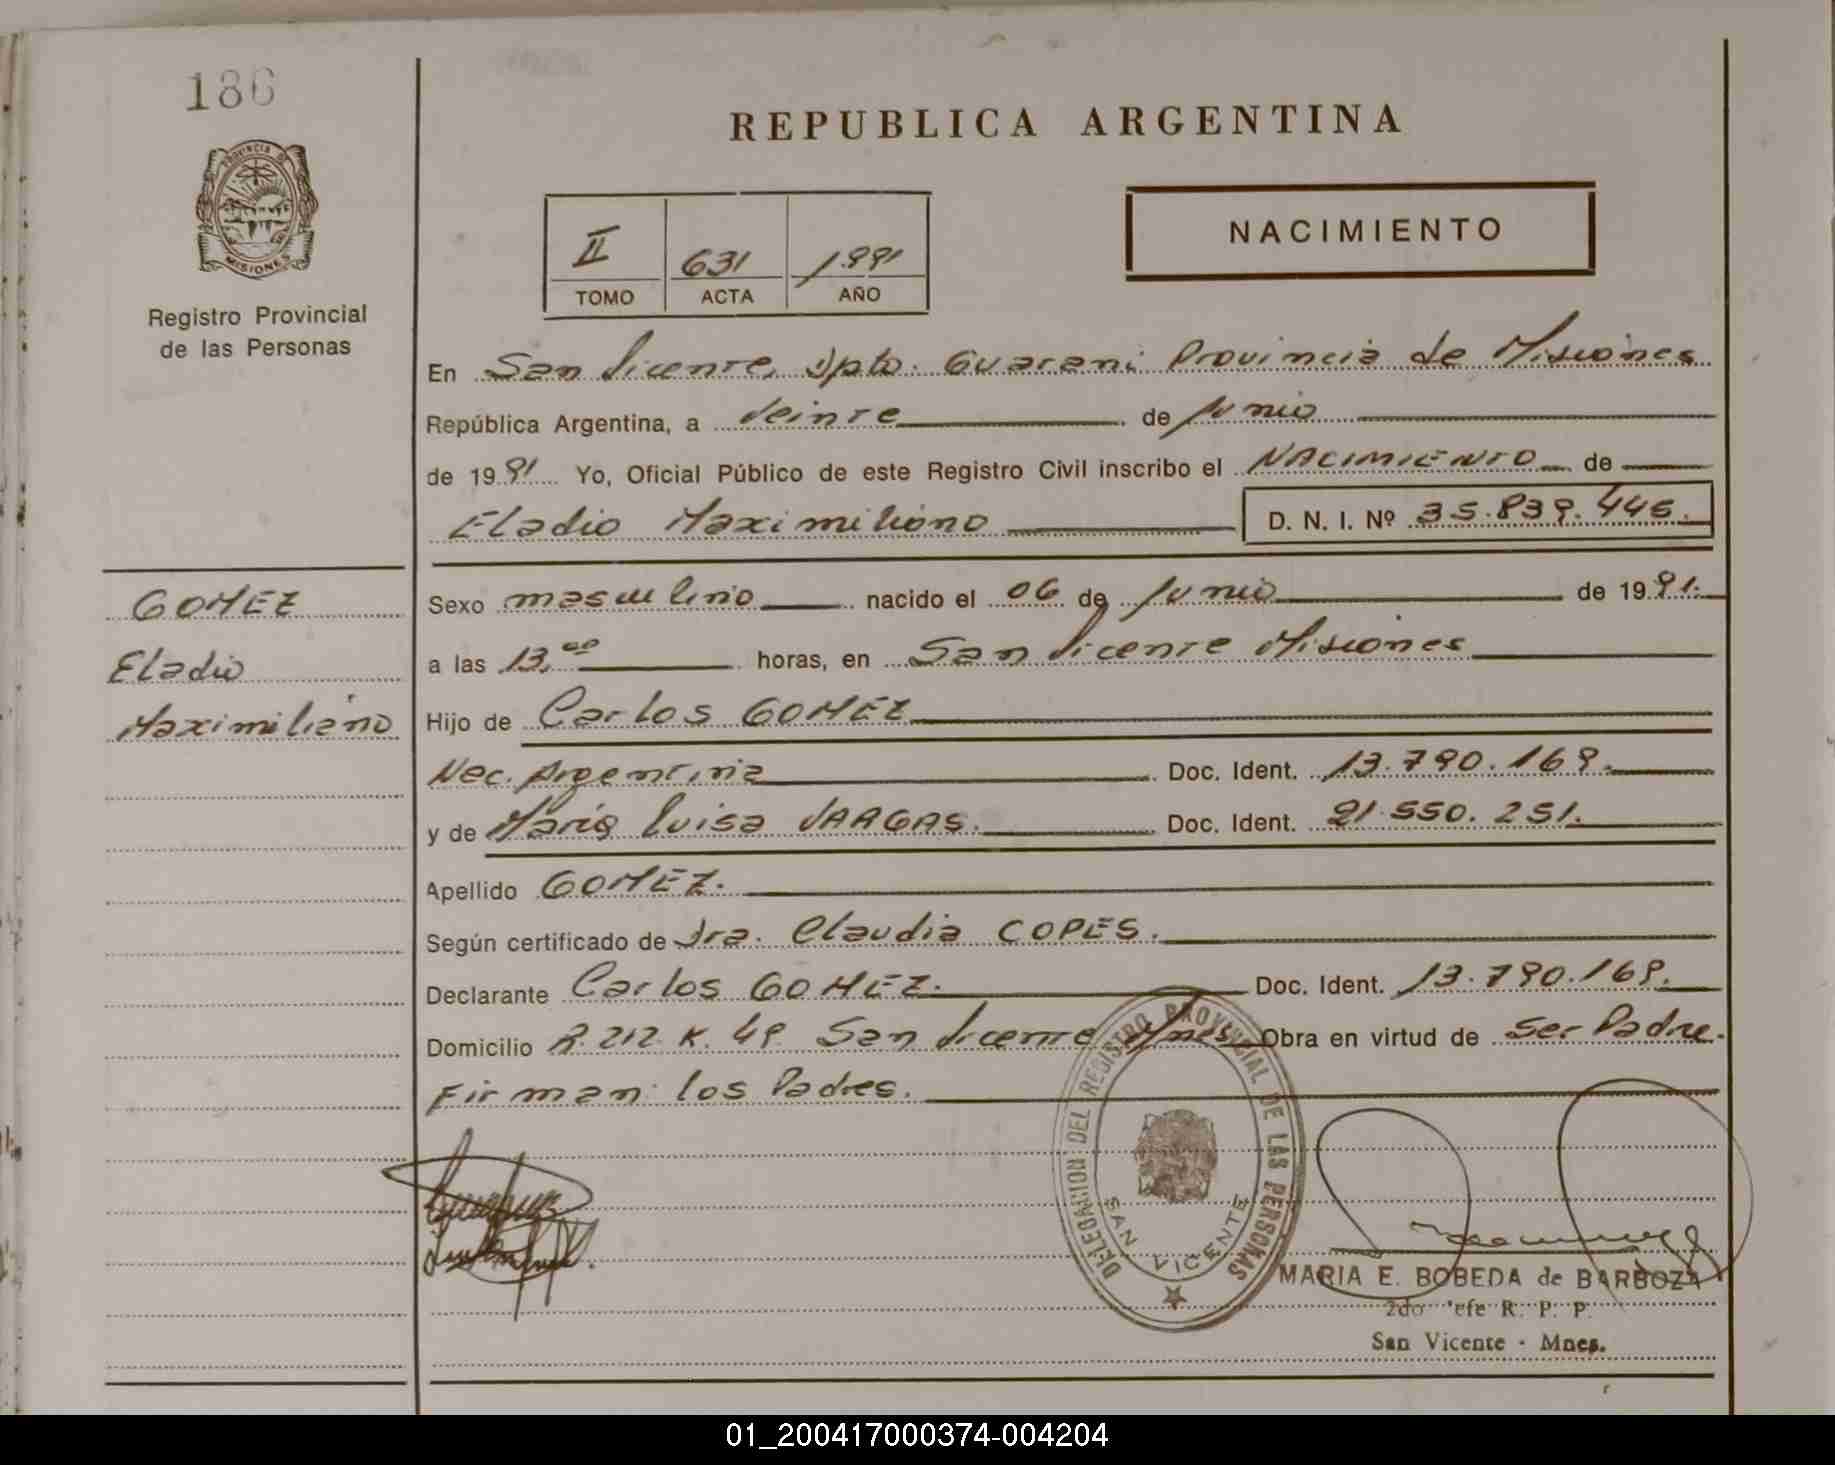 186
REPUBLICA ARGENTINA
PROVINCIA DE
MISIONES
Registro Provincial
de las Personas
II 631 1991
TOMO ACTA AÑO
NACIMIENTO
En San Vicente, Dpto. Guarani Provincia de Misiones
República Argentina, a Veinte de Junio
de 1991 Yo, Oficial Público de este Registro Civil inscribo el NACIMIENTO de
Eladio Maximiliano D. N. I. Nº 35.839.446.
GOMEZ
Eladio
Maximiliano
Sexo masculino nacido el 06 de Junio de 1991.
a las 13,00 horas, en San Vicente Misiones
Hijo de Carlos GOMEZ
Nac. Argentina Doc. Ident. 13.790.169.
y de Maria Luisa VARGAS. Doc. Ident. 21.550.251.
Apellido GOMEZ.
Según certificado de Dra. Claudia COPES.
Declarante Carlos GOMEZ. Doc. Ident. 13.790.169.
Domicilio R. 212 K. 49 San Vicente Mnes Obra en virtud de Ser Padre.
Firman: los Padres.
DELEGACION DEL REGISTRO PROVINCIAL DE LAS PERSONAS
SAN VICENTE
MARIA E. BOBEDA de BARBOZA
2do Jefe R. P. P.
San Vicente - Mnes.
01_200417000374-004204